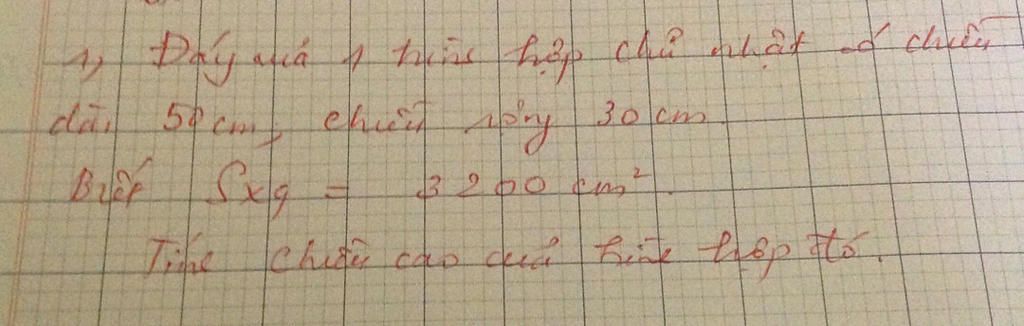 1, Đáy của 1 hình hộp chữ nhật có chiều
dài 50 cm, chiều rộng 30 cm
Biết Sxq = 3200 cm²
Tính chiều cao của hình hộp đó.